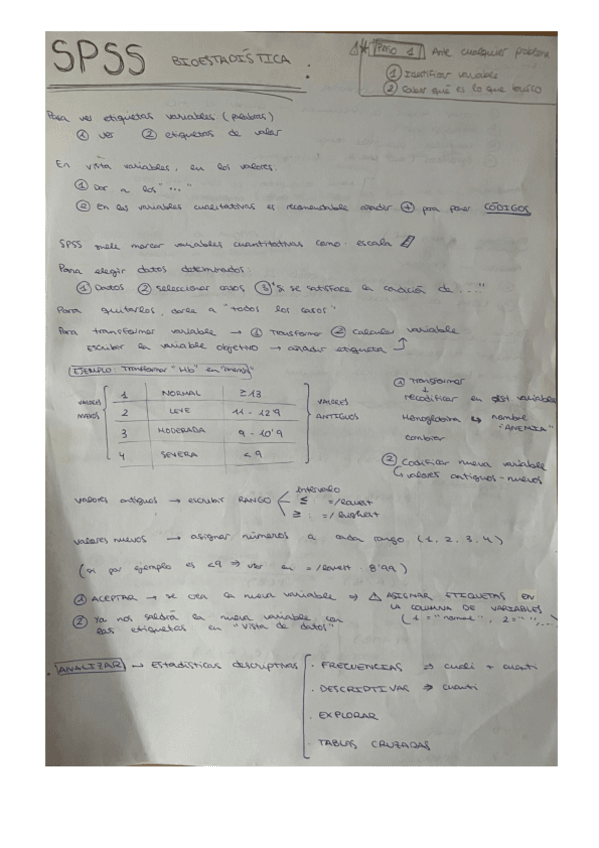 SPSS BIOESTADÍSTICA :
PASO 1 Ante cualquier problema
① Identificar variable
② Saber qué es lo que busco
Para ver etiquetas variables (palabras)
① ver ② etiquetas de valor
En vista variables, en los valores.
① Dar a los "..."
② En las variables cualitativas es recomendable añadir + para poner CÓDIGOS
SPSS suele marcar variables cuantitativas como escala
Para elegir datos determinados:
① Datos ② seleccionar casos ③ "si se satisface la condición de ..."
Para quitarlos, darle a "todos los casos"
Para transformar variable → ① Transformar ② calcular variable
Escribir la variable objetivo → añadir etiqueta
EJEMPLO: Transformar "Hb" en "anemia"
VALORES NUEVOS
1 NORMAL ≥13
2 LEVE 11 - 12'9
3 MODERADA 9 - 10'9
4 SEVERA < 9
VALORES ANTIGUOS
① Transformar
↓
recodificar en dist variable
Hemoglobina ↳ nombre "ANEMIA"
cambiar
② Codificar nueva variable
↳ valores antiguos - nuevos
valores antiguos → escribir RANGO
intervalo
≤ = / lowest
≥ = / highest
valores nuevos → asignar números a cada rango (1, 2, 3, 4)
(si por ejemplo es <9 ⇒ usar en = / lowest: 8'99)
① ACEPTAR → se crea la nueva variable ⇒ ⚠ ASIGNAR ETIQUETAS EN
LA COLUMNA DE VARIABLES
(1 = "normal", 2 = " ",...)
② Ya nos saldrá la nueva variable con
las etiquetas en "vista de datos"
ANALIZAR → Estadísticas descriptivas
· FRECUENCIAS ⇒ cuali + cuanti
· DESCRIPTIVAS ⇒ cuanti
· EXPLORAR
· TABLAS CRUZADAS